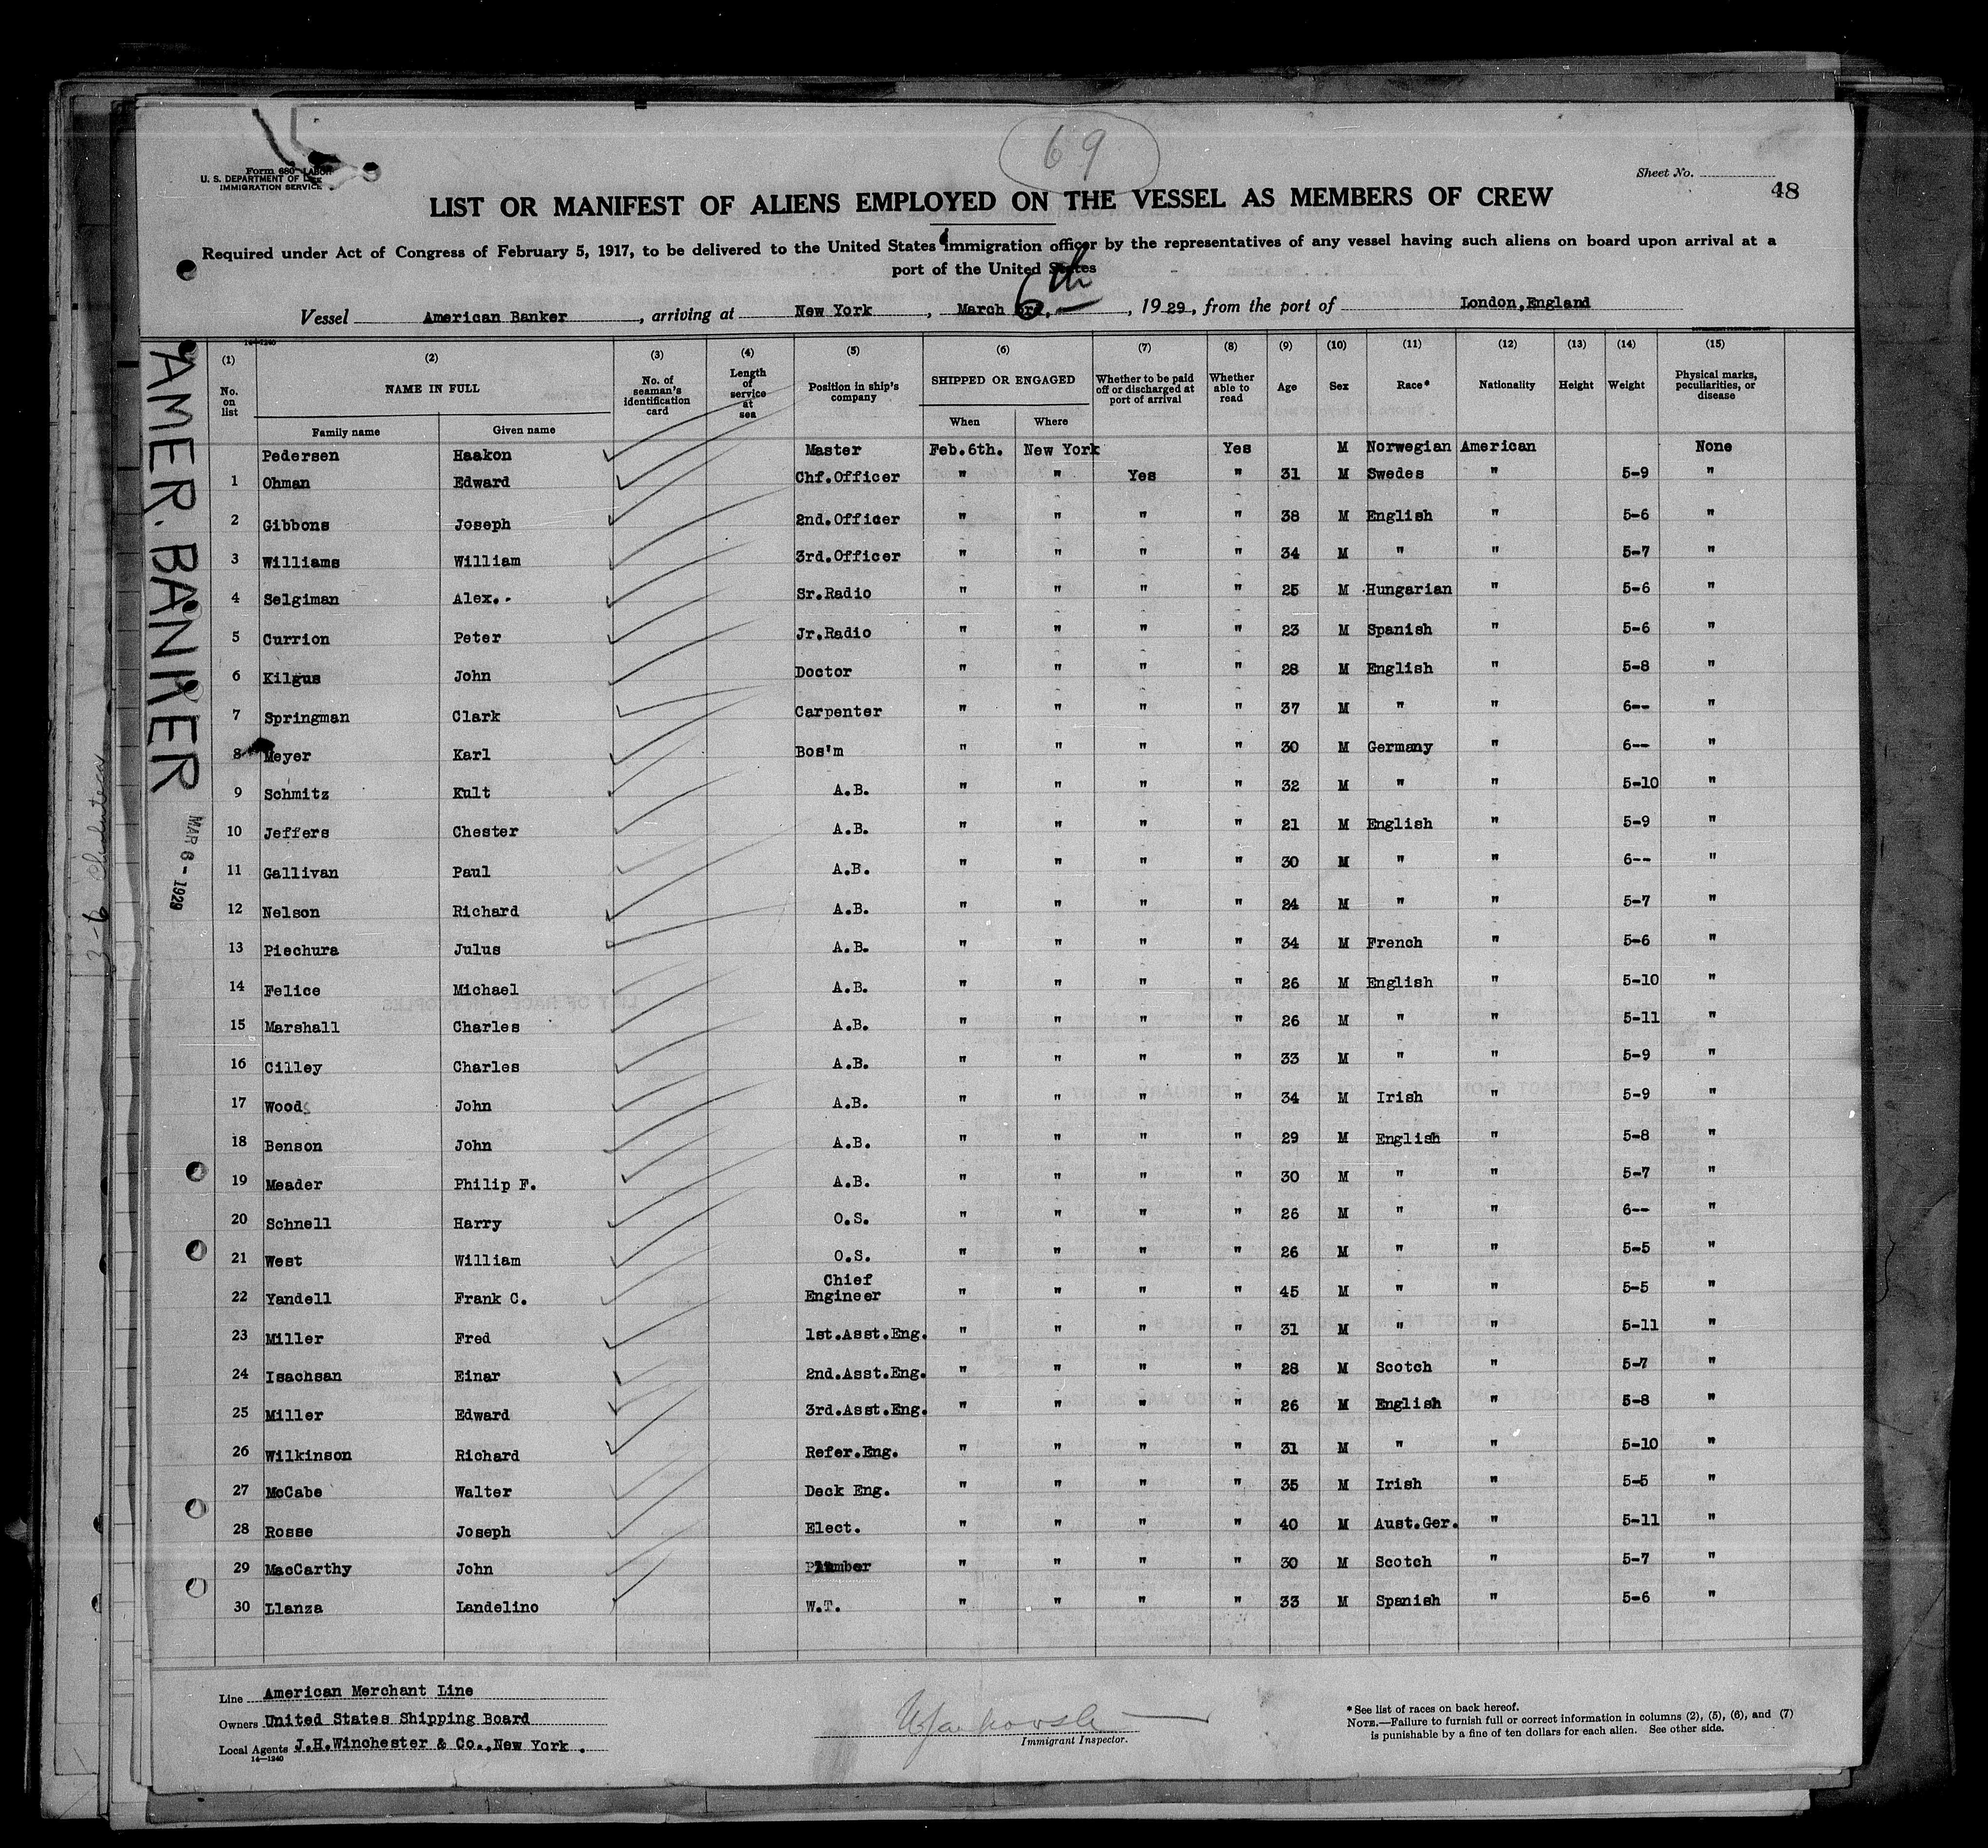 69
Form 680
U. S. DEPARTMENT OF LABOR
IMMIGRATION SERVICE
Sheet No.
48
LIST OR MANIFEST OF ALIENS EMPLOYED ON THE VESSEL AS MEMBERS OF CREW
Required under Act of Congress of February 5, 1917, to be delivered to the United States immigration officer by the representatives of any vessel having such aliens on board upon arrival at a
port of the United States
Vessel American Banker, arriving at New York, March 6th, 1929, from the port of London,England
AMER. BANKER
MAR 6 - 1929
14-1240
(1) (2) (3) (4) (5) (6) (7) (8) (9) (10) (11) (12) (13) (14) (15)
No. on list NAME IN FULL No. of seaman's identification card Length of service at sea Position in ship's company SHIPPED OR ENGAGED Whether to be paid off or discharged at port of arrival Whether able to read Age Sex Race* Nationality Height Weight Physical marks, peculiarities, or disease
Family name Given name When Where
Pedersen Haakon Master Feb.6th. New York Yes M Norwegian American None
1 Ohman Edward Chf.Officer " " Yes " 31 M Swedes " 5-9 "
2 Gibbons Joseph 2nd.Officer " " " " 38 M English " 5-6 "
3 Williams William 3rd.Officer " " " " 34 M " " 5-7 "
4 Selgiman Alex. Sr.Radio " " " " 25 M Hungarian " 5-6 "
5 Currion Peter Jr.Radio " " " " 23 M Spanish " 5-6 "
6 Kilgus John Doctor " " " " 28 M English " 5-8 "
7 Springman Clark Carpenter " " " " 37 M " " 6-- "
8 Meyer Karl Bos'm " " " " 30 M Germany " 6-- "
9 Schmitz Kult A.B. " " " " 32 M " " 5-10 "
10 Jeffers Chester A.B. " " " " 21 M English " 5-9 "
11 Gallivan Paul A.B. " " " " 30 M " " 6-- "
12 Nelson Richard A.B. " " " " 24 M " " 5-7 "
13 Piechura Julus A.B. " " " " 34 M French " 5-6 "
14 Felice Michael A.B. " " " " 26 M English " 5-10 "
15 Marshall Charles A.B. " " " " 26 M " " 5-11 "
16 Cilley Charles A.B. " " " " 33 M " " 5-9 "
17 Wood John A.B. " " " " 34 M Irish " 5-9 "
18 Benson John A.B. " " " " 29 M English " 5-8 "
19 Meader Philip F. A.B. " " " " 30 M " " 5-7 "
20 Schnell Harry O.S. " " " " 26 M " " 6-- "
21 West William O.S. " " " " 26 M " " 5-5 "
22 Yandell Frank C. Chief Engineer " " " " 45 M " " 5-5 "
23 Miller Fred 1st.Asst.Eng. " " " " 31 M " " 5-11 "
24 Isachsan Einar 2nd.Asst.Eng. " " " " 28 M Scotch " 5-7 "
25 Miller Edward 3rd.Asst.Eng. " " " " 26 M English " 5-8 "
26 Wilkinson Richard Refer.Eng. " " " " 31 M " " 5-10 "
27 McCabe Walter Deck Eng. " " " " 35 M Irish " 5-5 "
28 Rosse Joseph Elect. " " " " 40 M Aust.Ger. " 5-11 "
29 MacCarthy John Plumber " " " " 30 M Scotch " 5-7 "
30 Llanza Landelino W.T. " " " " 33 M Spanish " 5-6 "
Line American Merchant Line
Owners United States Shipping Board
Local Agents J.H.Winchester & Co.,New York.
14-1240
Immigrant Inspector.
*See list of races on back hereof.
NOTE.—Failure to furnish full or correct information in columns (2), (5), (6), and (7)
is punishable by a fine of ten dollars for each alien. See other side.